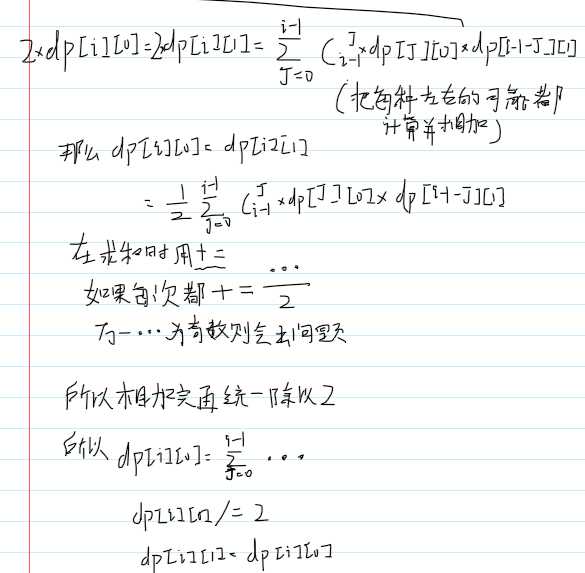 2×dp[i][0]=2dp[i][1]= i-1∑J=0 (C_{i-1}^{J}×dp[J][0]×dp[i-1-J][1]
(把每种左右的可能都
计算并相加)
那么 dp[i][0]= dp[i][1]
= 1/2 i-1∑J=0 C_{i-1}^{J}×dp[J][0]× dp[i-1-J][1]
在求和时用+=
如果每次都 += .../2
万一...为奇数则会出问题
所以相加完再统一除以2
所以 dp[i][0]= i-1∑J=0 ...
dp[i][0] /= 2
dp[i][1]= dp[i][0]